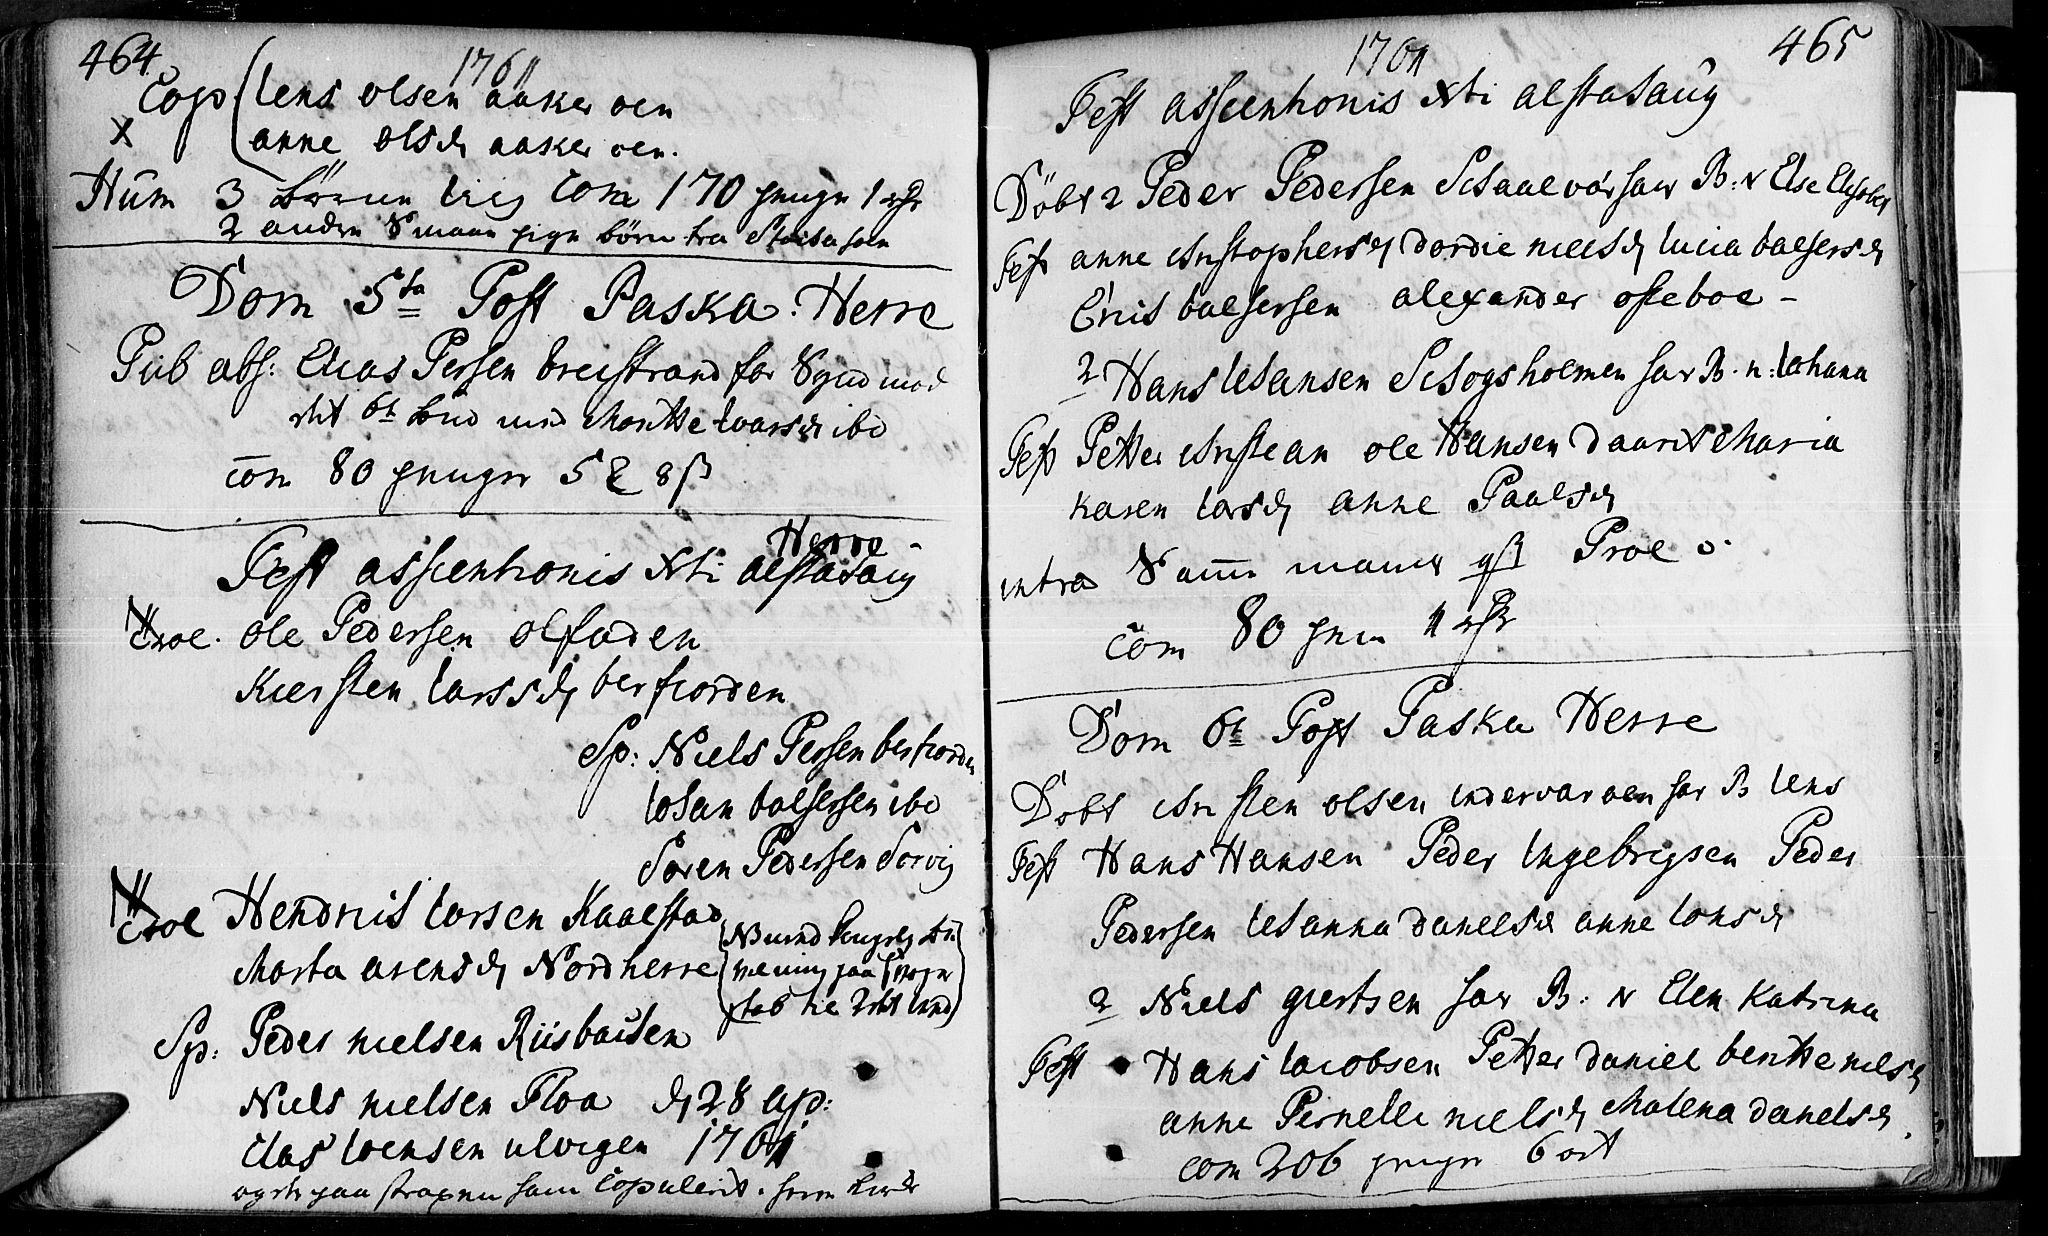 464
1761
Cop Jens olsen aaker oen
X anne olsd aaker oen.
Hum 3 börn com 170 penge 1
2 andre börn fra
Dom 5ta Post Paska. Herre
Pub abs: Elias Persen breistrand for
det 6t bud med Maritte ibd
com 80 penger 5 8 ß
Herre
Fest assentionis Xti alstadaug
Troel. ole Pedersen olfaden
Kiersten larsd berfiorden
Sp: Niels Persen berfiorden
Johan balsersen ibd
Soren Pedersen Sorvig
Troel Hendrik larsen Kaalstad
Marta arensd Nordherre
Sp: Peder nielsen Riisbacken
Niels nielsen Floa d 28 ap:
Clas Joensen ulvigen 1761
copulerit.
1761
465
Fest assentionis Xti alstadaug
Döbt 2 Peder Pedersen B: N Else
Test anne christophersd dordie nielsd lucia balsersd
Eric balsersen alexander osteboe -
2 Hans Johansen Schogsholmen har B. n: Johana
Test Petter christian ole Hansen daarit Maria
karen larsd anne Paalsd
intro Samme mands qß Proe
com 80 1
Dom 6t Post Paska Herre
Döbt christen olsen indervaroen har B Jens
Test Hans Hansen Peder Ingebrigsen Peder
Pedersen Johanna danielsd anne Jonsd
2 Niels giertsen har B: N Elen Katrina
Test Hans Jacobsen Petter daniel bentte nielsd
anne Pernelle nielsd Malena danelsd
com 206 penger 6 ort